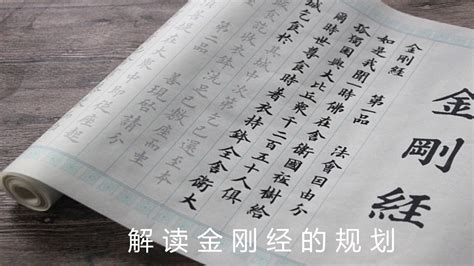 金剛經
金剛經 第一品 法會因由分
如是我聞一時佛在舍衛國祇樹給
孤獨園與大比丘衆千二百五十人俱
爾時世尊食時着衣持鉢入舍衛大
城乞食於其城中次第乞已還至本
衣鉢洗足已敷座而坐
第二品 善現啓請分
解读金刚经的规划